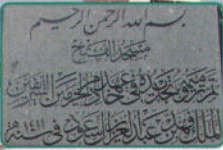 بسم الله الرحمن الرحيم
مسجد الفتح
تم ترميمه وتجديده في عهد خادم الحرمين الشريفين
الملك فهد بن عبد العزيز آل سعود في سنة ١٤١١هـ